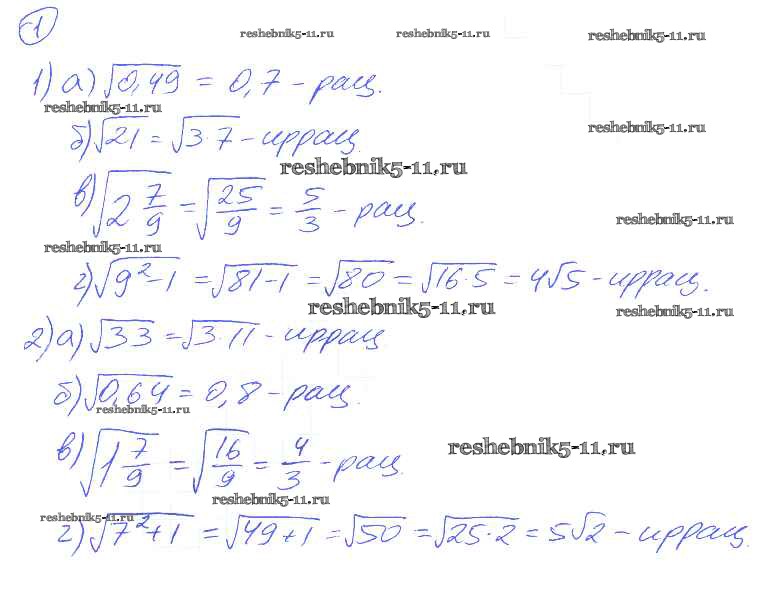 1
reshebnik5-11.ru reshebnik5-11.ru reshebnik5-11.ru
1) а) √0,49 = 0,7 - рац.
reshebnik5-11.ru
б) √21 = √3·7 - иррац. reshebnik5-11.ru
reshebnik5-11.ru
в) √2 7/9 = √25/9 = 5/3 - рац. reshebnik5-11.ru
reshebnik5-11.ru
г) √9²-1 = √81-1 = √80 = √16·5 = 4√5 - иррац.
reshebnik5-11.ru reshebnik5-11.ru
2) а) √33 = √3·11 - иррац
б) √0,64 = 0,8 - рац.
reshebnik5-11.ru
в) √1 7/9 = √16/9 = 4/3 - рац. reshebnik5-11.ru
reshebnik5-11.ru
reshebnik5-11.ru
г) √7²+1 = √49+1 = √50 = √25·2 = 5√2 - иррац.